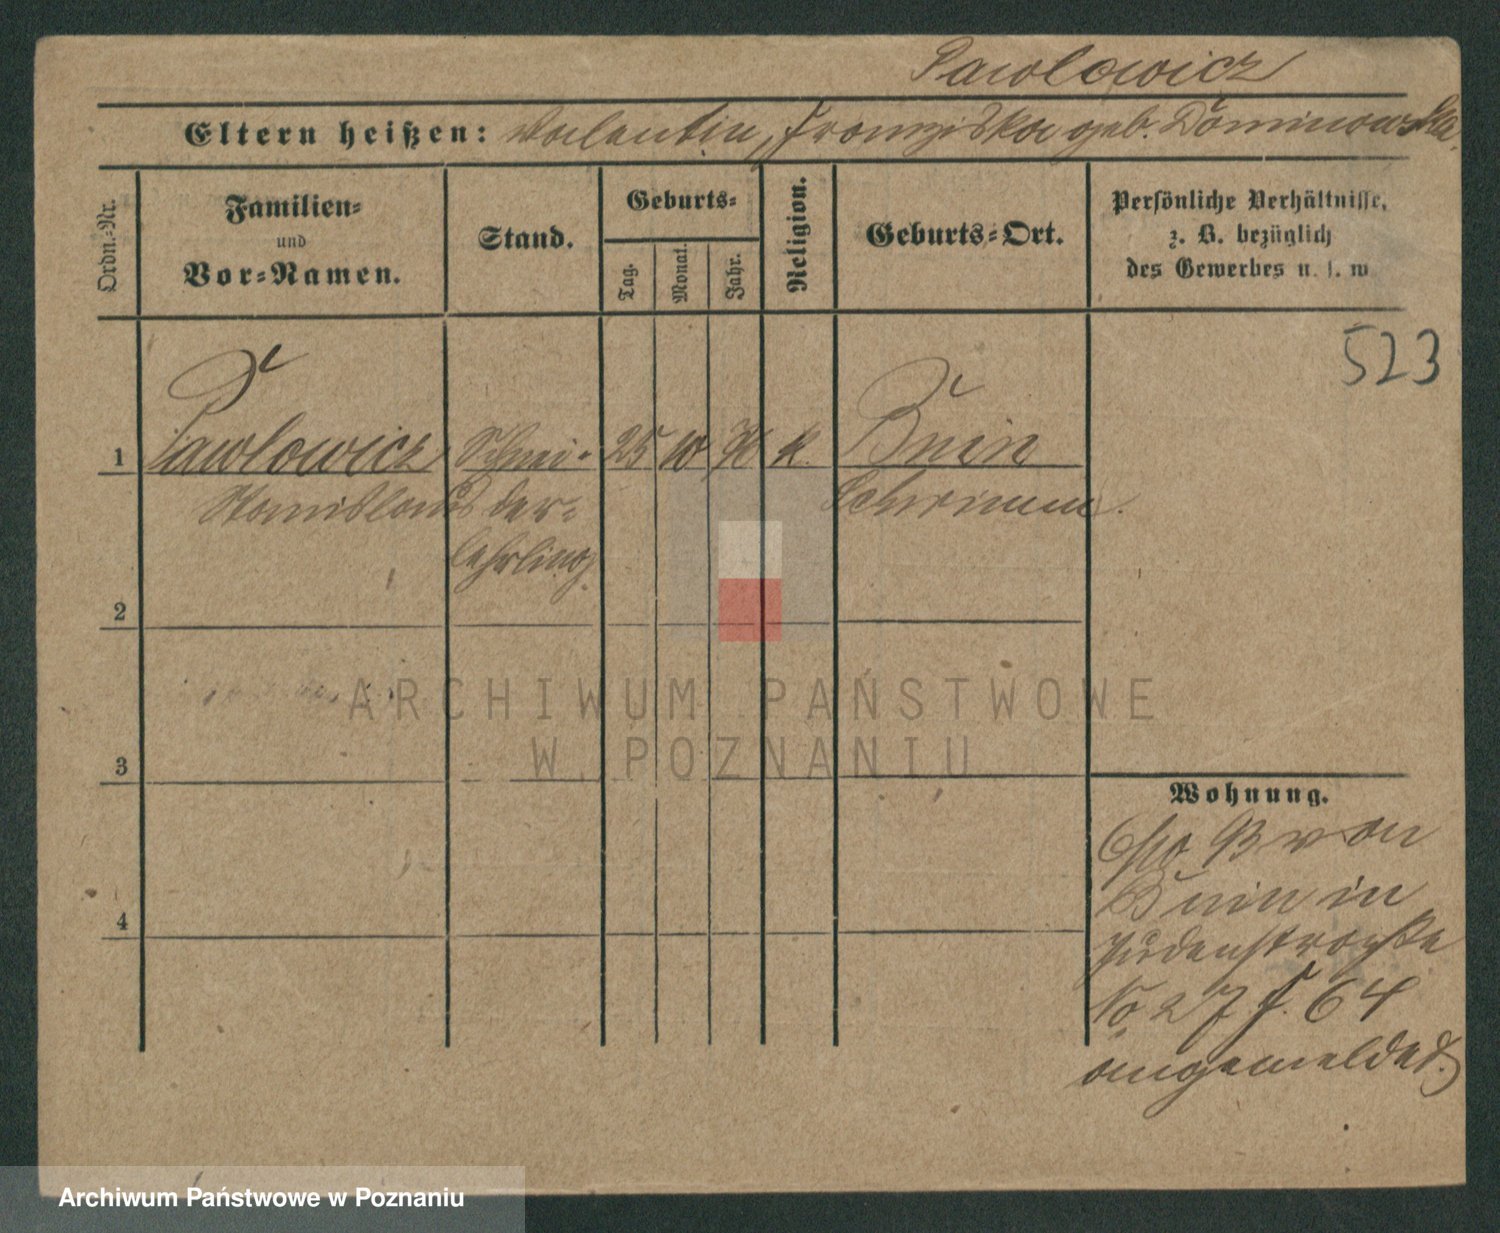 Pawlowicz
Eltern heißen: Valentin, Franziska geb. Dominowska.
Ordn.-Nr.
Familien-
und
Vor-Namen.
Stand.
Geburts-
Tag.
Monat.
Jahr.
Religion.
Geburts-Ort.
Persönliche Verhältnisse,
z. B. bezüglich
des Gewerbes u. s. w
523
1 Pawlowicz Schnei- 25 10 k. Bnin
Stanislaus der- Schrimm.
lehrling
2
3
4
ARCHIWUM PAŃSTWOWE
W POZNANIU
Wohnung.
93 von
Bnin in
Judenstraße
No 27 f. 64
angemeldet.
Archiwum Państwowe w Poznaniu